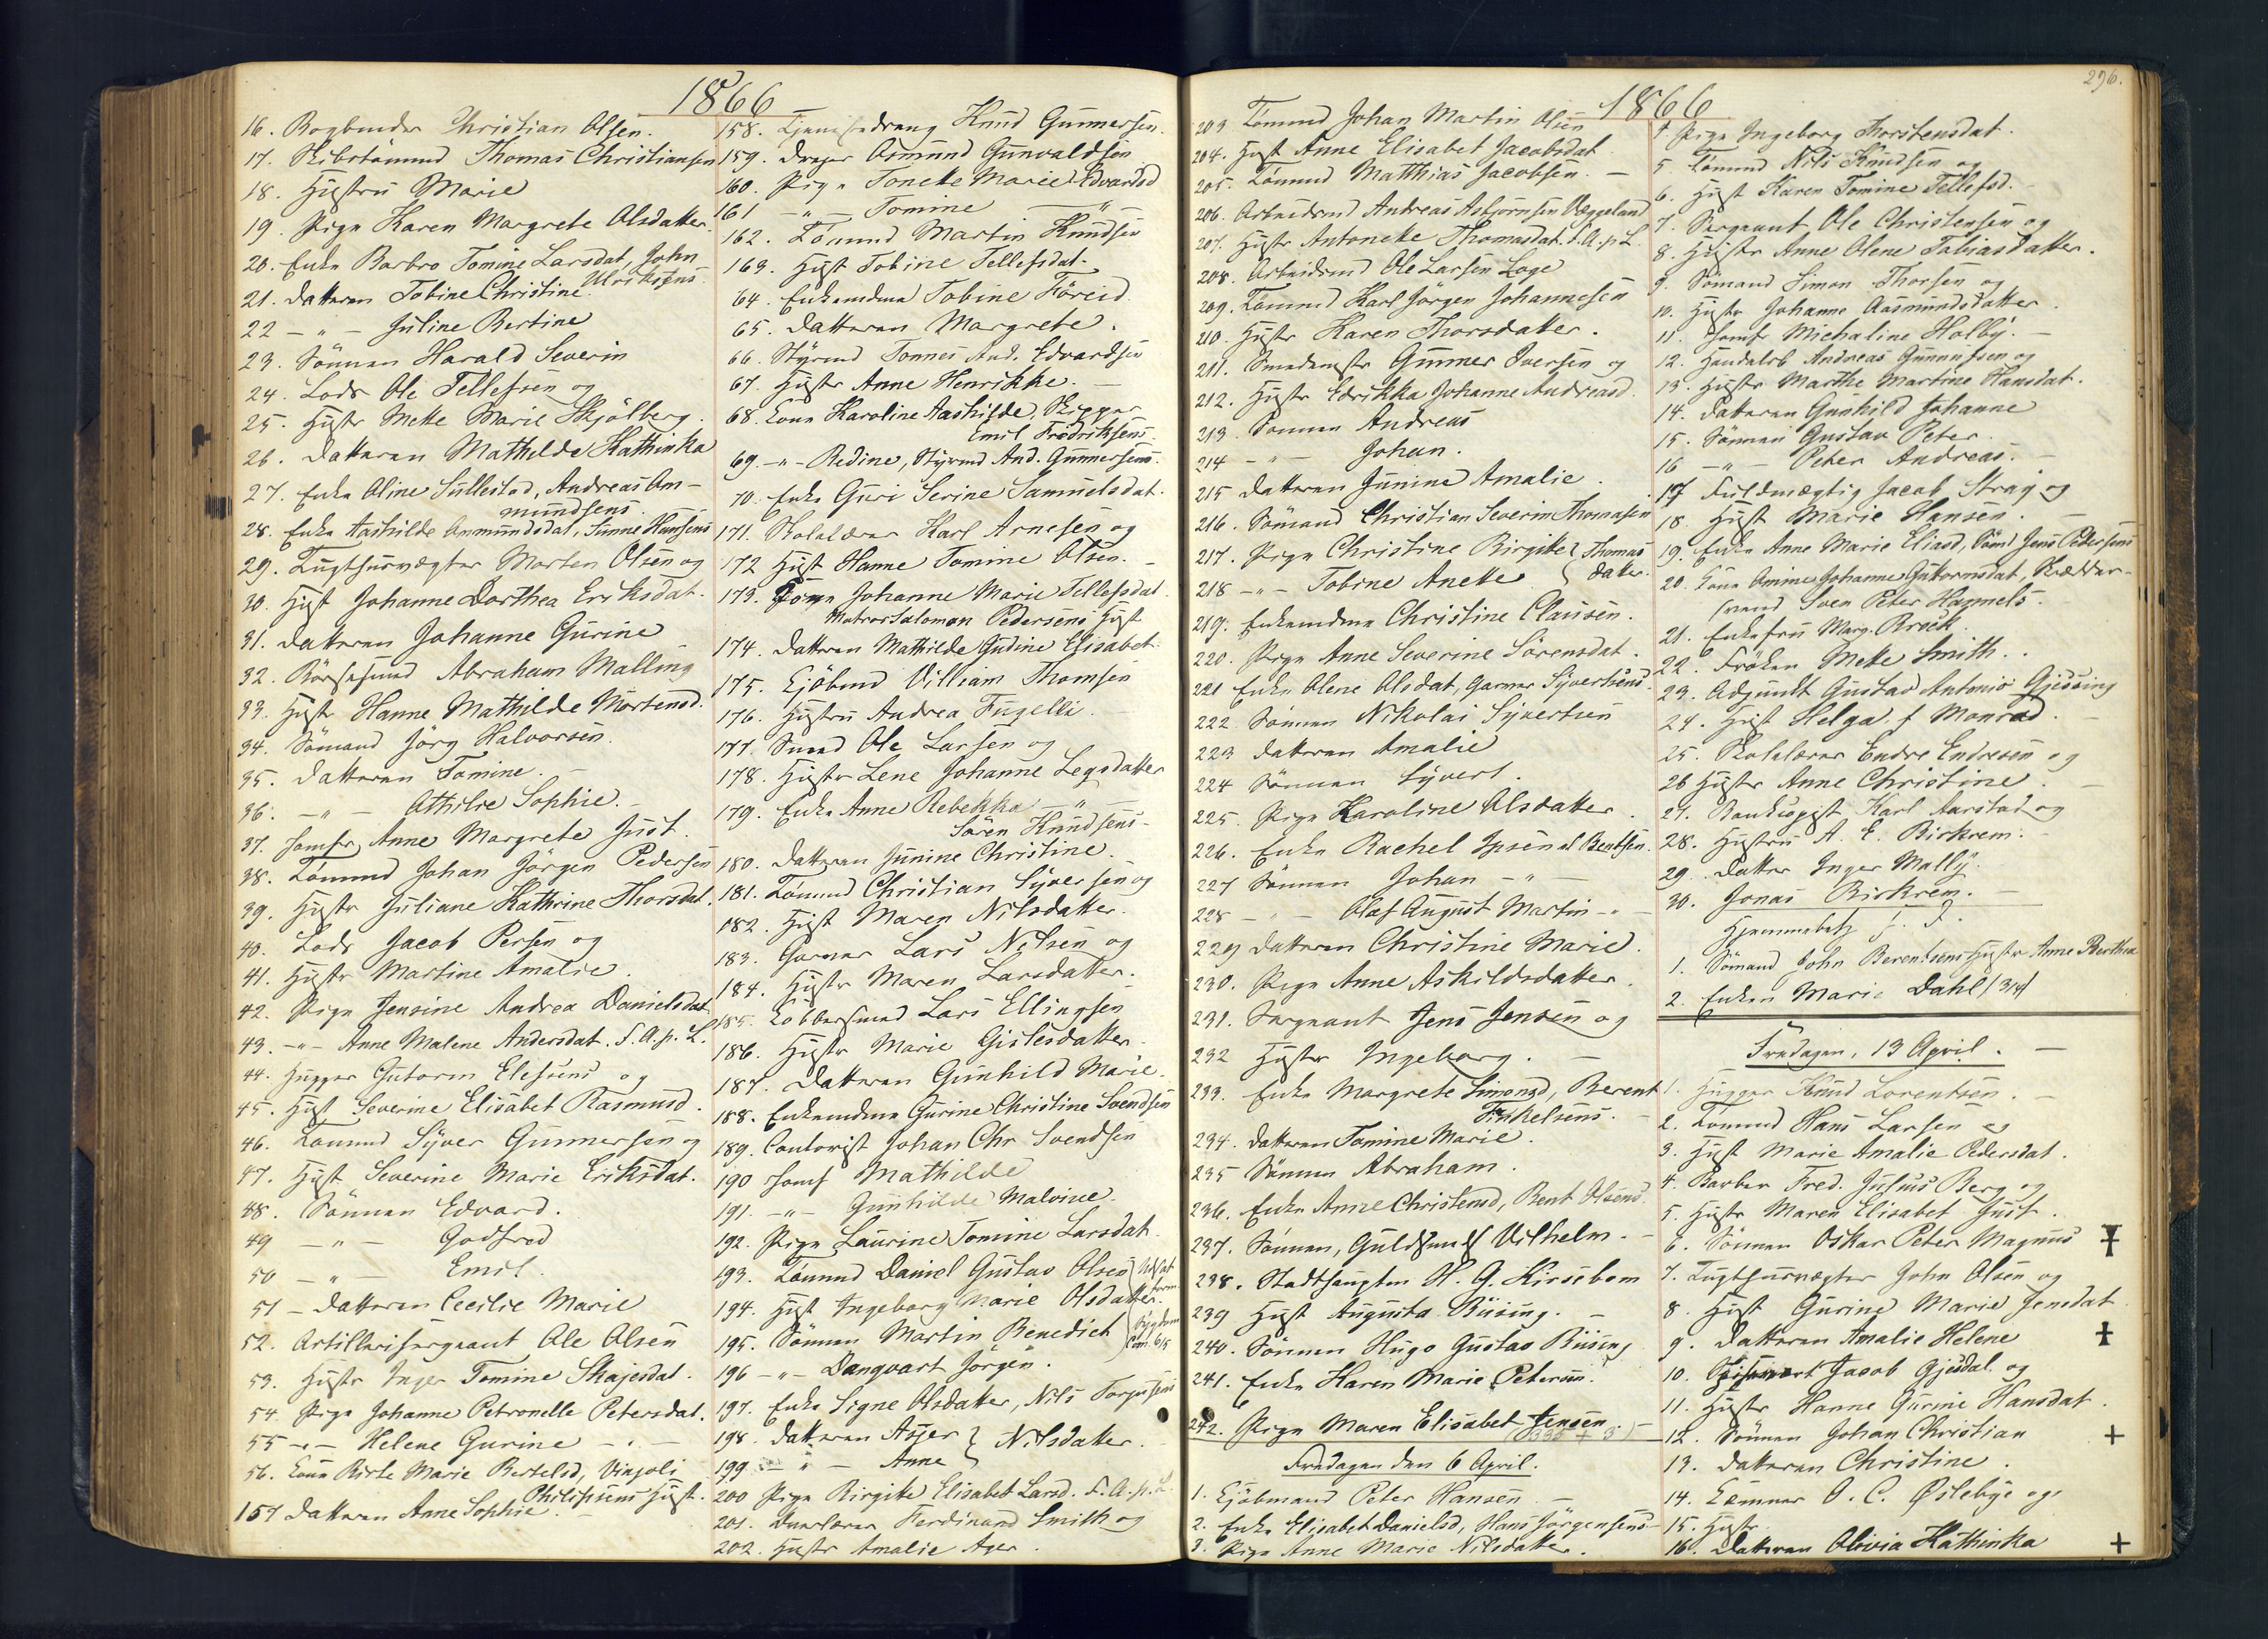 1866
16. Bogbinder Christian Olsen.
17. Skibstømmd Thomas Christiansen
18. Hustru Marie
19. Pige Karen Margrete Olsdatter.
20. Enke Barbro Tomine Larsdat, John
Ulriksens
21. Datteren Tobine Christine
22 - " - Juline Bertine
23. Sönnen Harald Severin
24. Lods Ole Tellefsen og
25. Hustr Mette Marie Skjölberg.
26. Datteren Mathilde Kathinka
27. Enke Oline Sullestad, Andreas Am-
mundsens.
28. Enke Aashilde Anmundsdat, Sunne Hansens
29. Tugthusvægter Morten Olsen og
30. Hust Johanne Dorthea Eriksdat.
31. Datteren Johanne Gurine
32. Børsesmed Abraham Malling
33. Hustr Hanne Mathilde Mortensd.
34. Sömand Jörg Halvorsen.
35. Datteren Tomine.
36. - " - Athilie Sophie.
37. Jomfr Anne Margrete Just.
38. Tömmd Johan Jörgen Pedersen
39. Hustr Juliane Kathrine Thorsdat.
40. Lods Jacob Persen og
41. Hustr Martine Amalie.
42. Pige Jensine Andrea Danielsdat
43. - " - Anne Malene Andersdat. F. A. p. L.
44. Hugger Gutorm Elefsens og
45. Hust Severine Elisabet Rasmusd.
46. Tömmd Syver Gunnersen og
47. Hust Severine Marie Eriksdat.
48. Sönnen Edvard.
49 - " - Godfred
50 - " - Emil.
51 - Datteren Cecilie Marie
52. Artillerisergeant Ole Olsen
53. Hustr Inger Tomine Skajesdat.
54. Pige Johanne Petronelle Petersdat.
55 - " - Helene Gurine - " -
56. Kone Birte Marie Bertelsd, Vinjoli
Philipsens Hust.
157 Datteren Anne Sophie.
158. Tjenestedreng Knud Gunnersen.
159. Drager Osmund Gunvaldsen
160. Pige Tonette Marie Edvardsd
161 - " - Tomine - " -
162. Tömmd Martin Knudsen
163. Hust Tobine Tellefsdat.
64. Enkemdme Tobine Föreid
65. Datteren Margrete.
66. Styrmd Tonnes And. Edvardsen
67. Hustr Anne Henrikke.
68. Kone Karoline Aashilde, Skipper
Emil Fredriksens.
69. - " - Redine, Styrmd And. Gunnersens.
70. Enke Guri Serine Samuelsdat.
171. Skolelærer Karl Arnesen og
172 Hust Hanne Tomine Olsen.
173. Kone Johanne Marie Tellefsdat
Matros Salomon Pedersens Hust
174. Datteren Mathilde Gudine Elisabet.
175. Kjöbmd Villiam Thomsen
176. Hustru Andrea Fugelli.
177. Smed Ole Larsen og
178. Hustr Lene Johanne Legsdatter
179. Enke Anne Rebekka - " -
Sören Knudsens -
180. Datteren Junine Christine.
181. Tömmd Christian Syversen og
182. Hust Maren Nilsdatter.
183. Garver Lars Nilsen og
184. Hustr Maren Larsdatter.
185. Kobbersmed Lars Ellingsen
186. Hustr Marie Gislesdatter
187. Datteren Gunhild Marie.
188. Enkemdme Gurine Christine Svendsen
189. Contorist Johan Chr Svendsen
190 Jomf Mathilde
191. - " - Gunhilde Malvine.
192. Pige Laurine Tomine Larsdat
193. Tömmd Daniel Gustav Olsen
194. Hust Ingeborg Marie Olsdatter.
195. Sönnen Martin Benedict
196 - " - Danqvart Jörgen.
197. Enke Signe Olsdatter, Nils Torjusens
198. Datteren Asjer } Nilsdatter.
199 - " - Anne
200 Pige Birgitte Elisabet Larsd. F. A. p. L.
201. Ferdinand Smith og
202. Hustr Amalie Ager.
1866
296.
203 Tömmd Johan Martin Olsen
204. Hust Anne Elisabet Jacobsdat
205. Tömmd Matthias Jacobsen.
206. Arbeidsmd Andreas Asbjornsen Væggeland
207. Hustr Antonette Thomasdat. F. A. p. L.
208. Arbeidsmd Ole Larsen Loge
209. Tömmd Karl Jörgen Johannesen
210. Hustr Karen Thorsdatter.
211. Smedemstr Gunner Iversen og
212. Hustr Edrikka Johanne Andreasd.
213. Sonnen Andreas
214 - " - Johan.
215 Datteren Junine Amalie.
216. Sömand Christian Severin Thomasen
217. Pige Christine Birgitte } Thomas
datter.
218 - " - Tobine Anette
219. Enkemdme Christine Clausen.
220. Pige Anne Severine Sörensdat.
221 Enke Olene Olsdat, Garver Syvertsens
222 Sönnen Nikolai Syvertsen
223 Datteren Amalie
224 Sönnen Syvert.
225. Pige Karoline Olsdatter
226. Enke Rachel Ipsen el Bentsen.
227 Sönnen Johan - " -
228 - " - Olaf August Martin - " -
229 Datteren Christine Marie.
230. Pige Anne Askildsdatter.
231. Sergeant Jens Jensen og
232 Hustr Ingeborg.
233. Enke Margrete Simonsd, Berent
Terkelsens.
234. Datteren Tomine Marie.
235 Sönnen Abraham.
236. Enke Anne Christensd, Bent Olsens
237. Sönnen, Guldsmed Vilhelm.
238. Stadshauptm H. G. Kirsebom
239 Hust Augusta Büsing.
240. Sönnen Hugo Gustav Büsing
241. Enke Karen Marie Petersen.
242. Pige Maren Elisabet Jensen
Fredagen den 6 April.
1. Kjöbmand Peter Hansen
2. Enke Elisabet Danielsd, Hans Jörgensens
3. Pige Anne Marie Nilsdatter.
4. Pige Ingeborg Thorstensdat.
5. Tömmd Nils Knudsen og
6. Hust Karen Tomine Tellefsd.
7. Sergeant Ole Christensen og
8. Hustr Anne Olene Tobiasdatter.
9. Sömand Simon Thorsen og
10. Hustr Johanne Aasmundsdatter
11. Jomfr Michaline Holby.
12. Handelsb Andreas Gunnufsen og
13. Hustr Marthe Martine Hansdat.
14. Datteren Gunhild Johanne
15. Sönnen Gustav Peter
16 - " - Peter Andreas.
17 Fuldmægtig Jacob Stray og
18. Hust Marie Hansen.
19. Enke Anne Marie Eliasd, Sömd Jens Pedersens
20. Kone Amine Johanne Gutormsdat, Skrædder-
svend Sven Peter Hammels.
21. Enkefru Marg. Brock
22. Fröken Mette Smith.
23. Adjunkt Gustav Antonio Gjessing
24. Hust Helga f Monrad.
25. Skolelærer Endre Endresen og
26 Hustr Anne Christine.
27. Bankbogist Karl Aarstad og
28. Hustru A. E. Birkrem.
29. Datter Inger Mally.
30. Jonas Birkrem.
Hjemmebetj
1. Sömand John Berentsens Hustr Anne Berthea
2. Enken Marie Dahl (3/4)
Fredagen, 13 April.
1. Hugger Knud Lorentsen.
2. Tömmd Hans Larsen og
3. Hust Marie Amalie Pedersdat.
4. Barber Fred. Julius Berg og
5. Hustr Maren Elisabet Just.
6. Sönnen Oskar Peter Magnus
7. Tugthusvægter John Olsen og
8. Hust Gurine Marie Jensdat
9. Datteren Amalie Helene
10. Jacob Gjesdal og
11. Hustr Hanne Gurine Hansdat
12. Sönnen Johan Christian +
13. Datteren Christine.
14. Kæmner O. C. Øslebye og
15. Hustr
16. Datteren Olivia Kathinka +